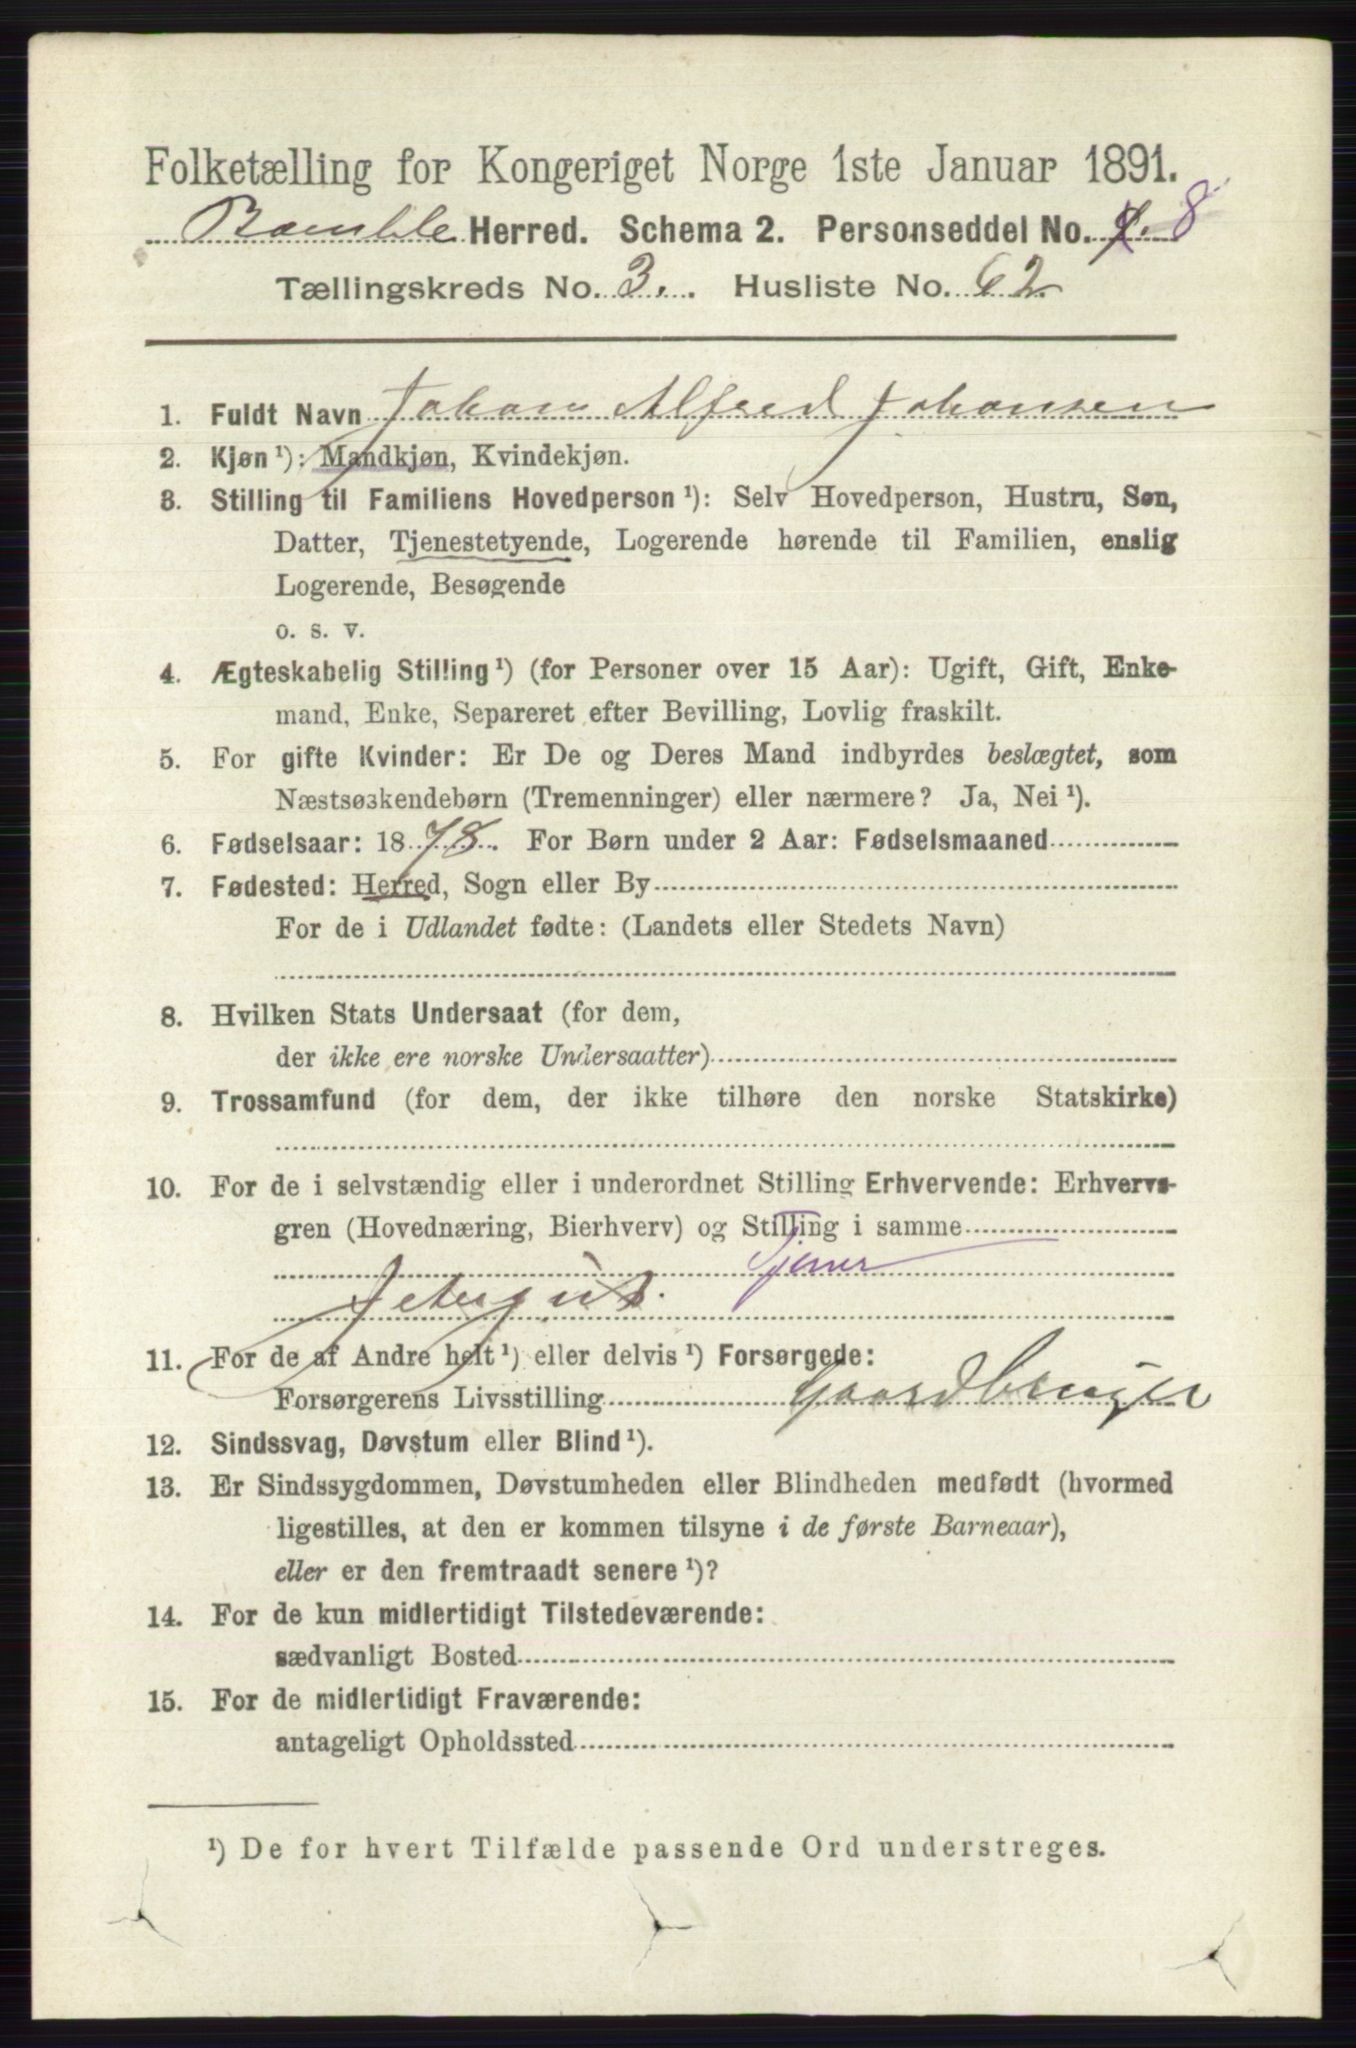 Folketælling for Kongeriget Norge 1ste Januar 1891.
Bamble Herred. Schema 2. Personseddel No. 8
Tællingskreds No. 3. Husliste No. 62
1. Fuldt Navn Johan Alfred Johansen
2. Kjøn ¹): Mandkjøn, Kvindekjøn.
3. Stilling til Familiens Hovedperson ¹): Selv Hovedperson, Hustru, Søn,
Datter, Tjenestetyende, Logerende hørende til Familien, enslig
Logerende, Besøgende
o. s. v.
4. Ægteskabelig Stilling ¹) (for Personer over 15 Aar): Ugift, Gift, Enke-
mand, Enke, Separeret efter Bevilling, Lovlig fraskilt.
5. For gifte Kvinder: Er De og Deres Mand indbyrdes beslægtet, som
Næstsøskendebørn (Tremenninger) eller nærmere? Ja, Nei ¹).
6. Fødselsaar: 1878. For Børn under 2 Aar: Fødselsmaaned
7. Fødested: Herred, Sogn eller By
For de i Udlandet fødte: (Landets eller Stedets Navn)
8. Hvilken Stats Undersaat (for dem,
der ikke ere norske Undersaatter)
9. Trossamfund (for dem, der ikke tilhøre den norske Statskirke)
10. For de i selvstændig eller i underordnet Stilling Erhvervende: Erhvervs-
gren (Hovednæring, Bierhverv) og Stilling i samme
Tjener
Jetergut.
11. For de af Andre helt ¹) eller delvis ¹) Forsørgede:
Forsørgerens Livsstilling Gaardbruger
12. Sindssvag, Døvstum eller Blind ¹).
13. Er Sindssygdommen, Døvstumheden eller Blindheden medfødt (hvormed
ligestilles, at den er kommen tilsyne i de første Barneaar),
eller er den fremtraadt senere ¹)?
14. For de kun midlertidigt Tilstedeværende:
sædvanligt Bosted
15. For de midlertidigt Fraværende:
antageligt Opholdssted
¹) De for hvert Tilfælde passende Ord understreges.